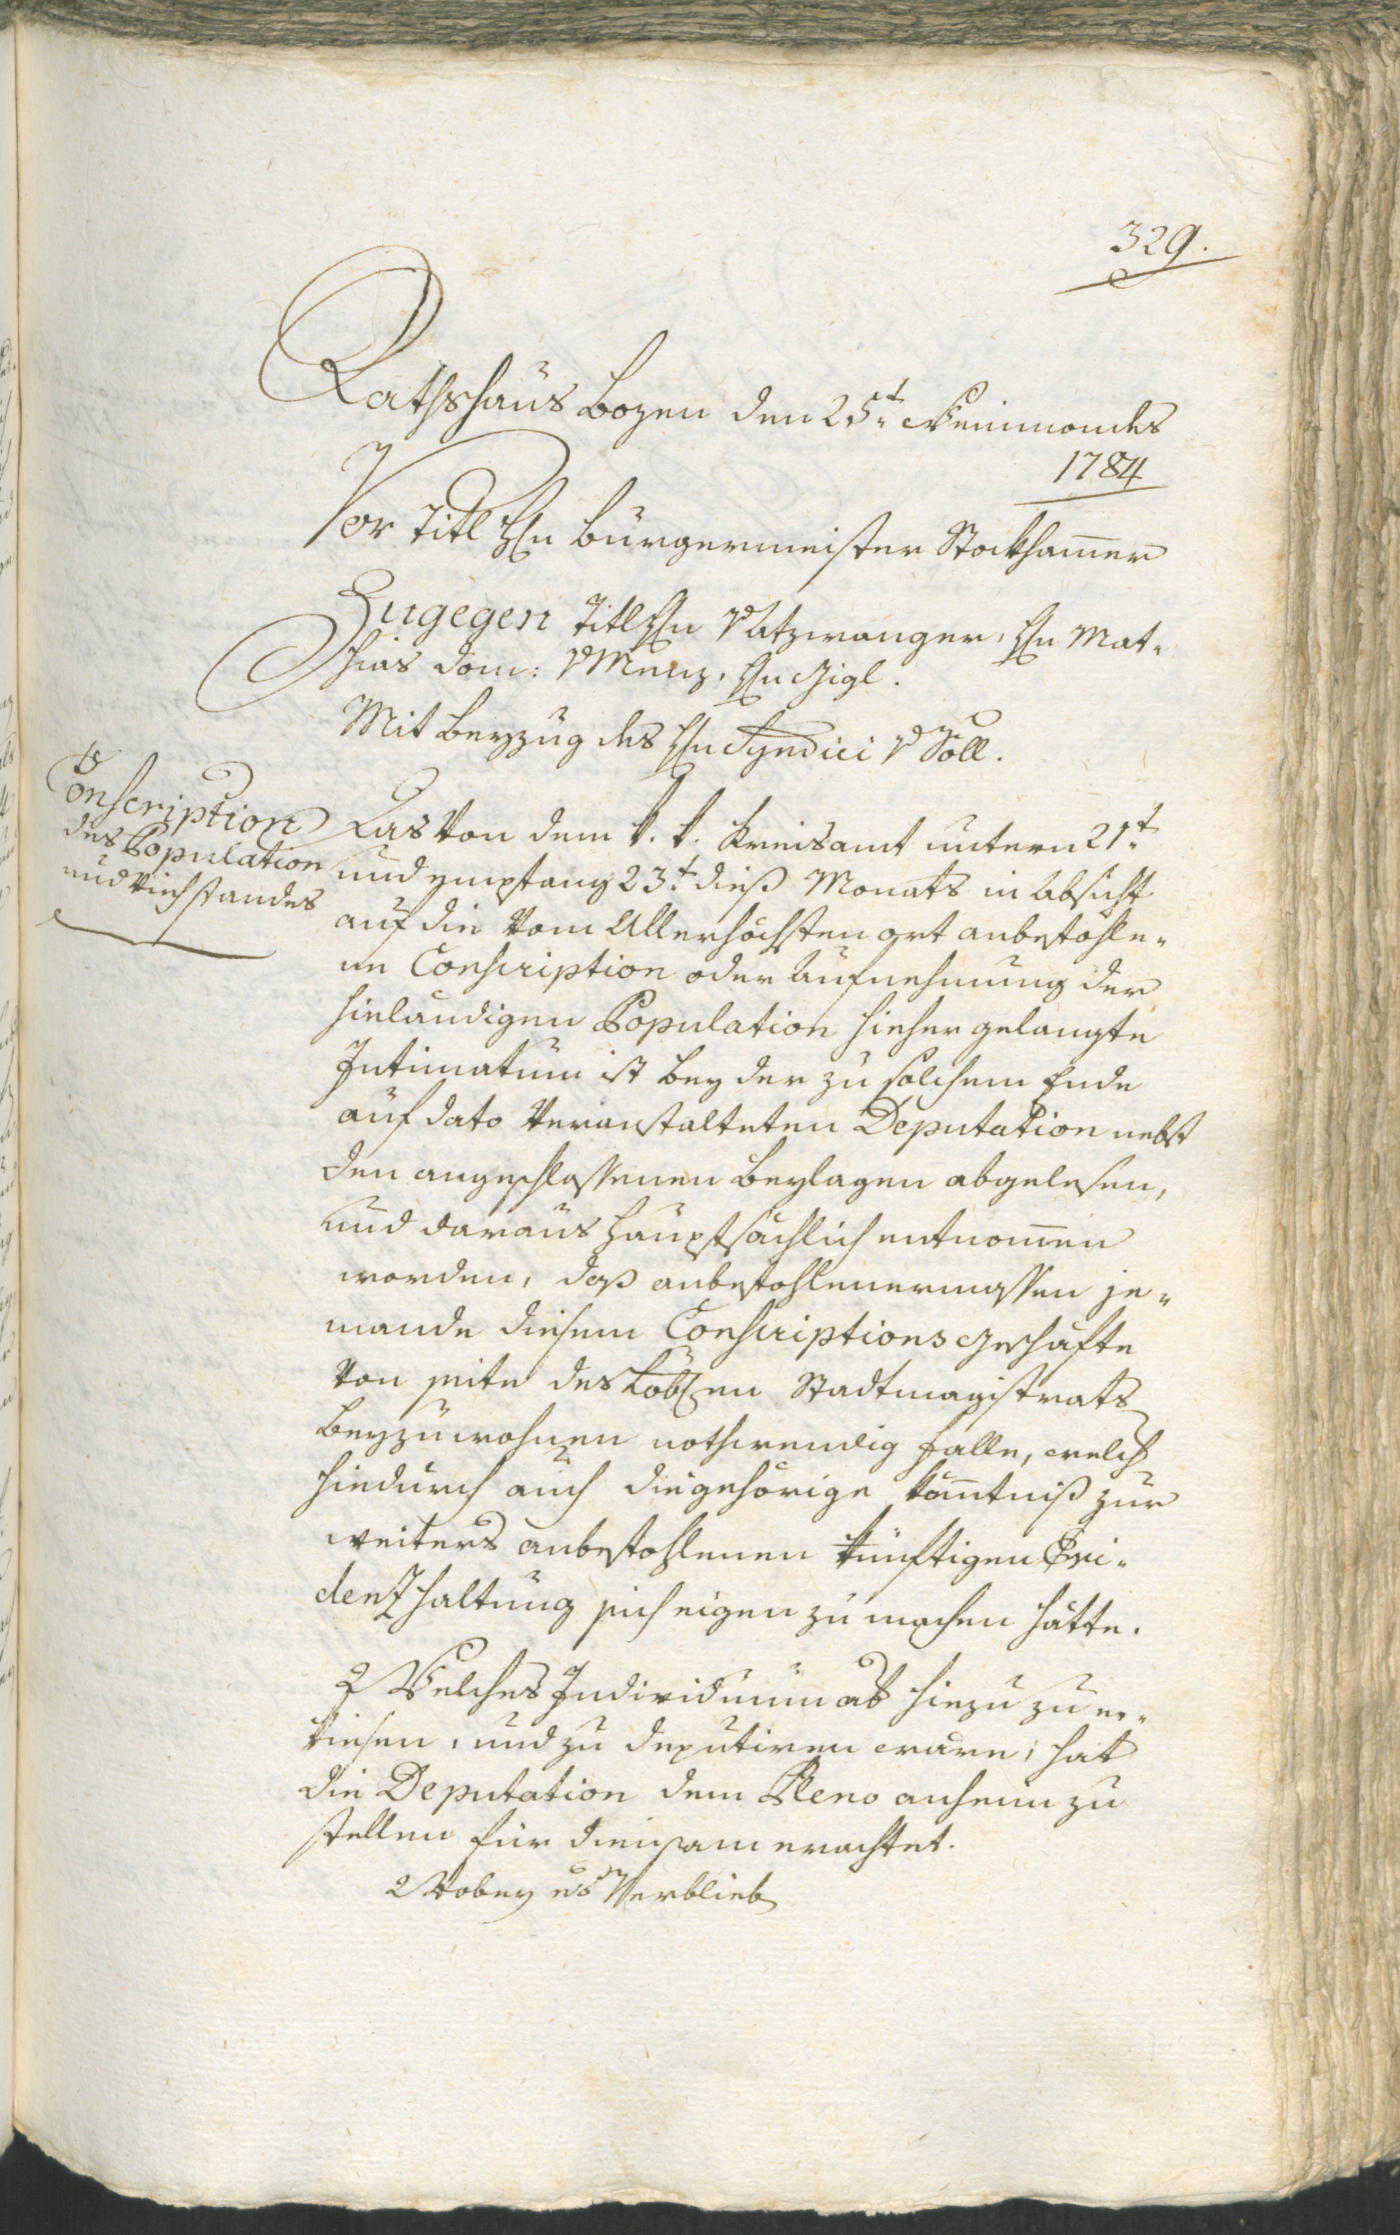 329.
Rathshaus Bozen den 25.t Weinmondes
1784
Vor Titl Hn Bürgermeister Stockham̅er
Zugegen Titl Hn v Atzwanger, Hn Mat-
hias Dom: v Menz, Hn Gigl.
Mit Beyzug des Hn Syndici v Söll.
Conscription
des Population
und Viehstandes
Das von dem k. k. Kreisamt untern 21.t
und empfang 23.t dieß Monats in Absicht
auf die vom Allerhöchsten ort anbefohle-
ne Conscription oder Aufnehmung der
hieländigen Population hieher gelangte
Intimatum ist bey der zu solchem Ende
auf dato veranstalteten Deputation nebst
den angeschlossenen Beylagen abgelesen,
und daraus hauptsächlich entnom̅en
worden, daß anbefohlenermassen je-
mande diesem Conscriptionsgeschäfte
von seite des Löbl.en Stadtmagistrats
beyzuwohnen nothwendig falle, welch
hiedurch auch die gehörige kän̅tniß zur
weiters anbefohlenen künftigen Evi-
denzhaltung sich eigen zu machen hätte.
Welches Individuum ab hiezu zu er-
kiesen, und zu deputiren wäre, hat
die Deputation dem Pleno anheim zu
stellen für diensam erachtet.
Wobey es Verblieb